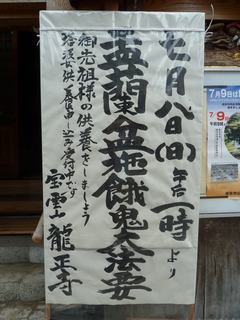 七月八日(日)午后一時より
盂蘭盆施餓鬼大法要
御先祖様の供養をしましょう
塔婆供養申し込み受付中です
宝雲山 龍正寺
7月9日
7/9